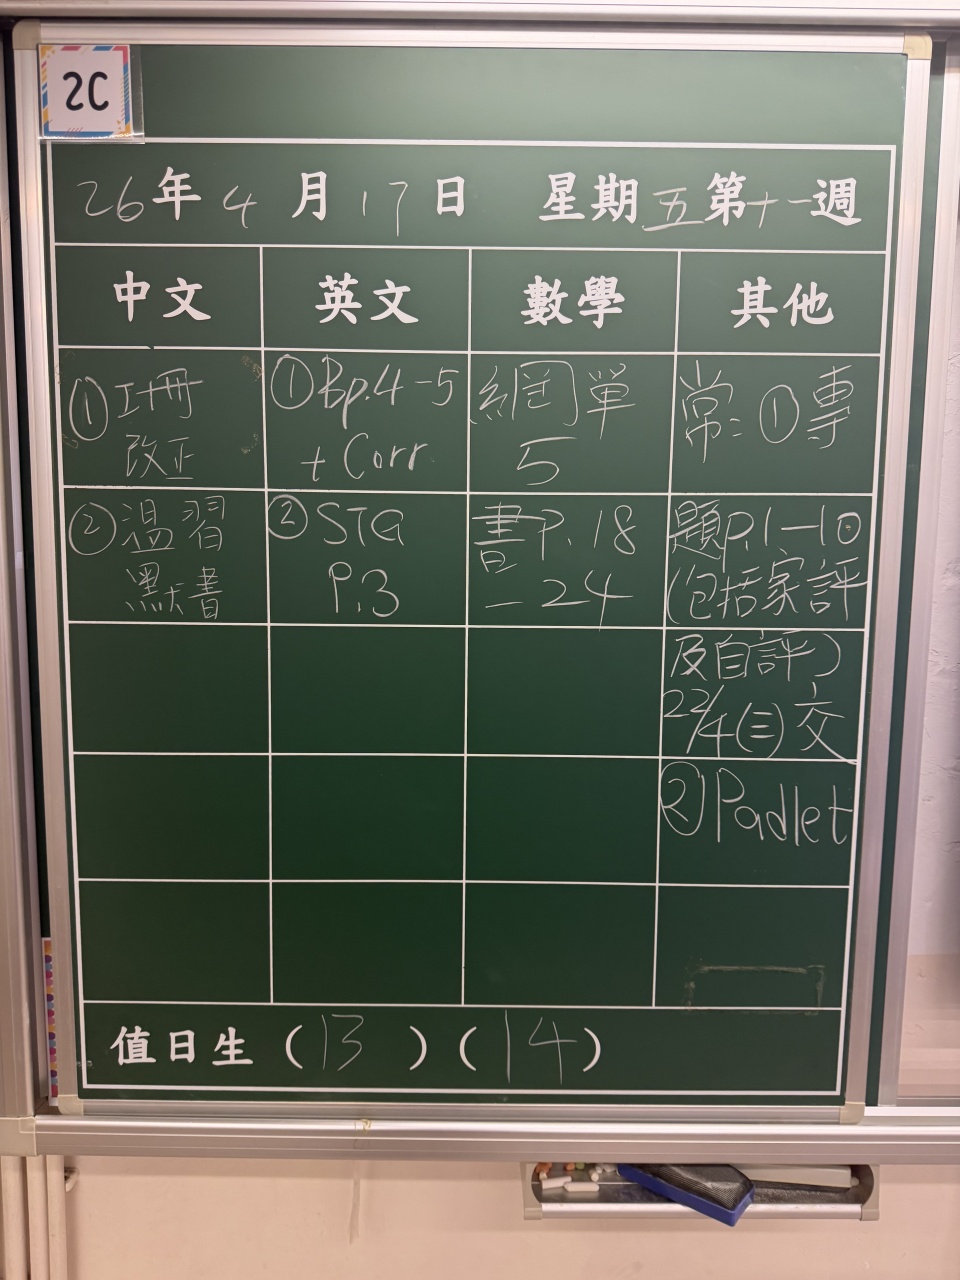 2C
26年4月17日 星期五第十一週
中文 英文 數學 其他
①工冊
改正
②溫習
默書
①Bp.4-5
+ Corr
②STG
P.3
網單
5
書P.18
-24
常:①專
題P.1-10
(包括家評
及自評)
22/4(三)交
②Padlet
值日生(13)(14)